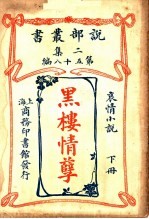 說部叢書
二集
第五十八編
哀情小說
黑樓情孽
下冊
上海商務印書館發行